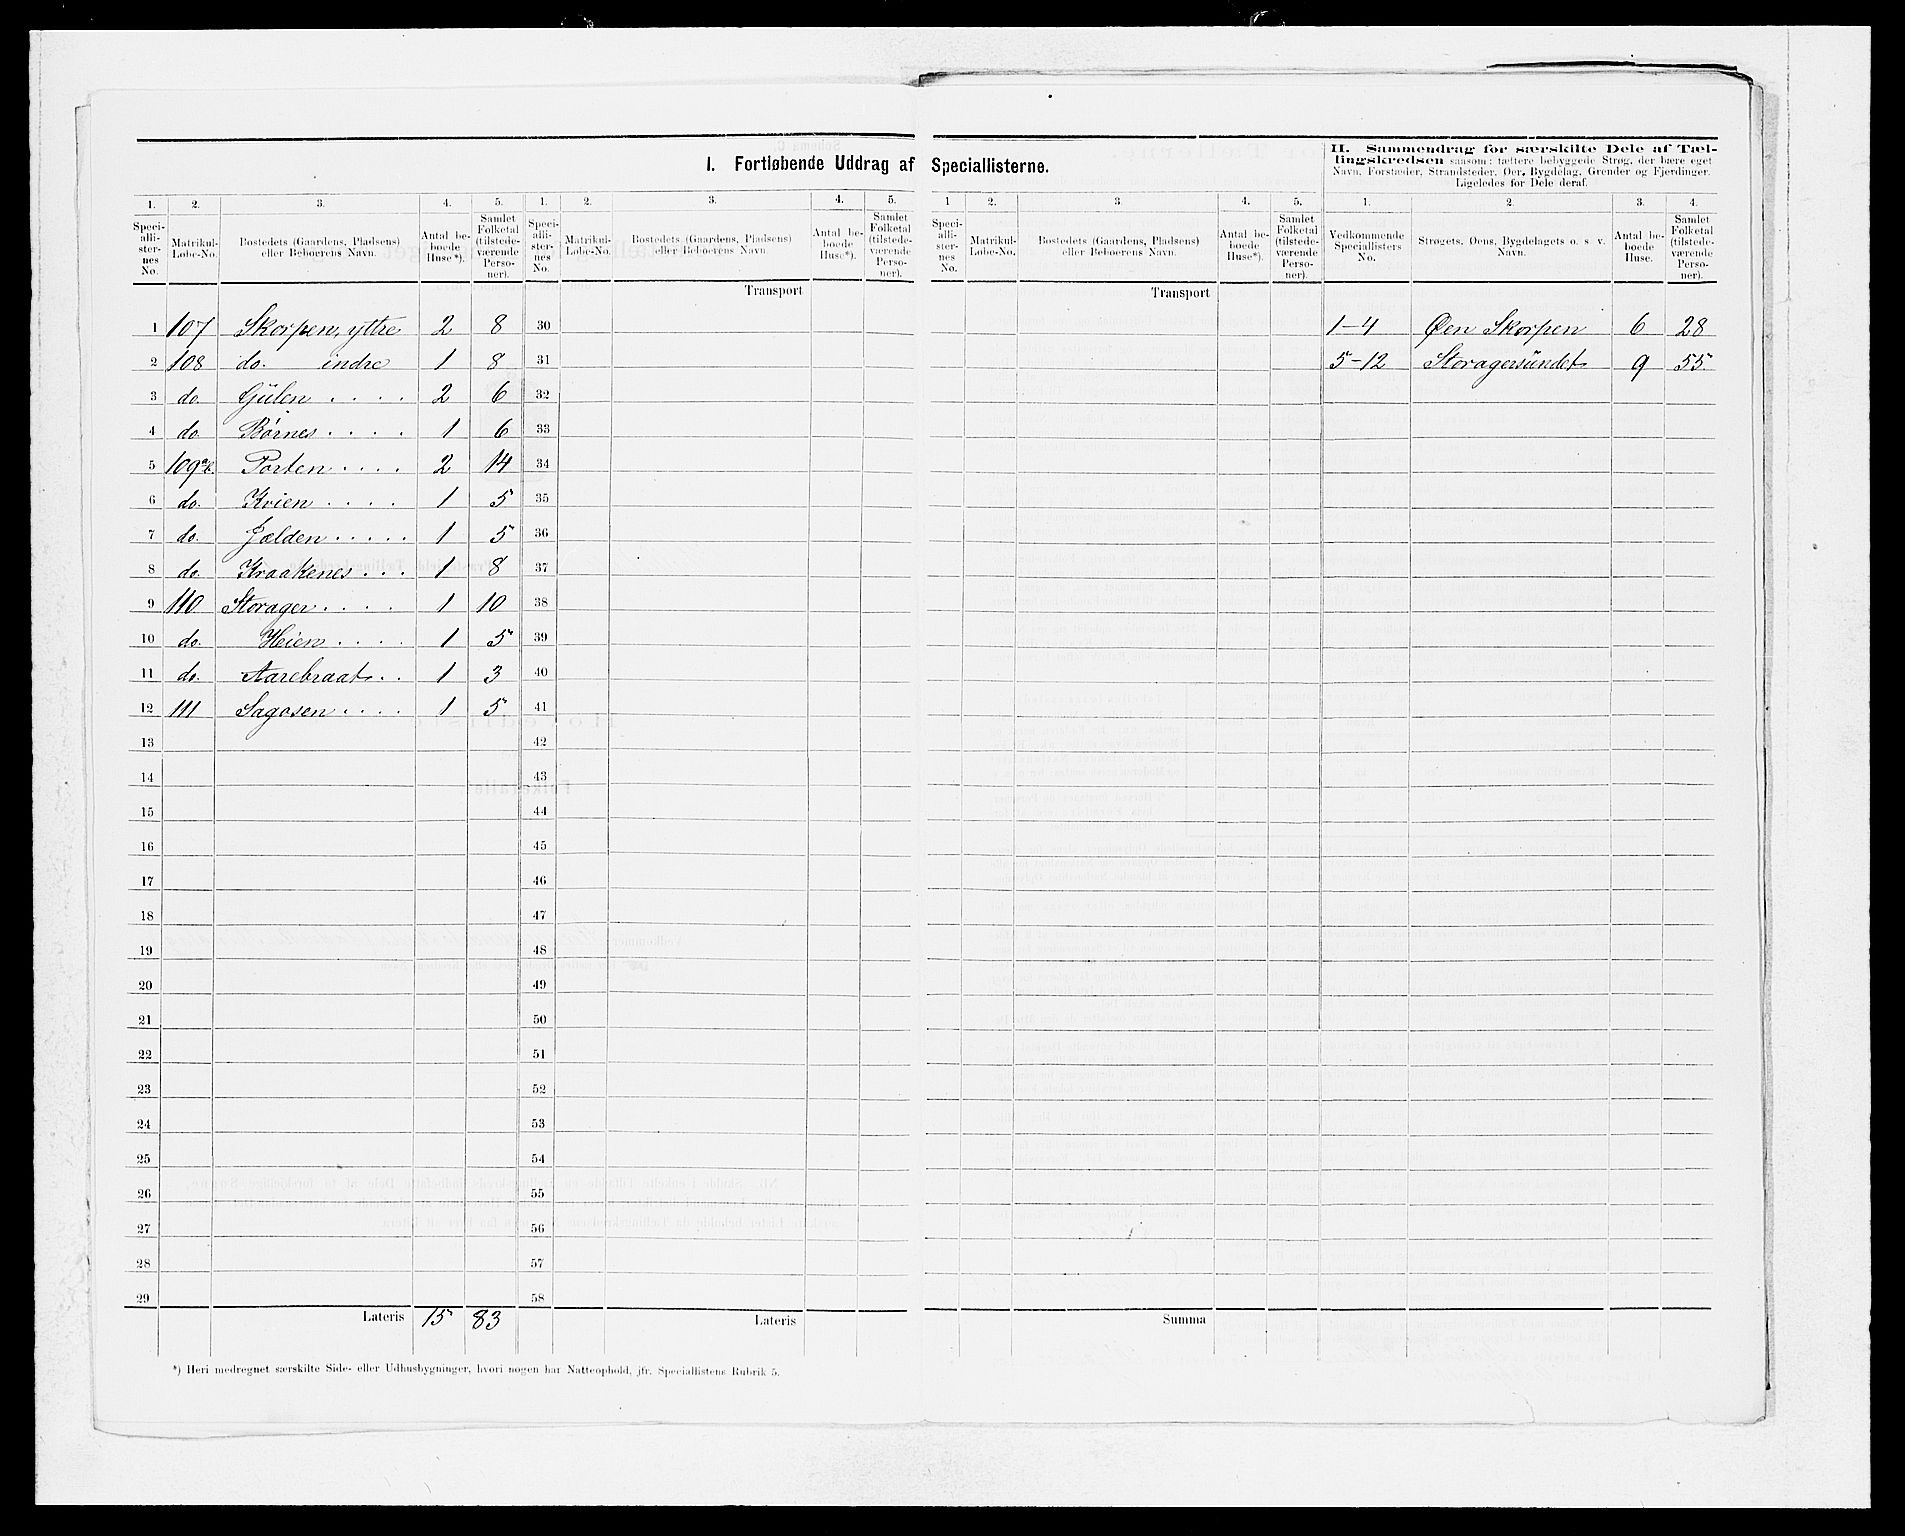 I. Fortløbende Uddrag af Speciallisterne.
II. Sammendrag for særskilte Dele af Tæl-
lingskredsen saasom: tættere bebyggede Strøg, der bære eget
Navn, Forstæder, Strandsteder, Øer, Bygdelag, Grender og Fjerdinger.
Ligeledes for Dele deraf.
1. 2. 3. 4. 5. 1. 2. 3. 4. 5. 1 2. 3. 4. 5. 1. 2. 3. 4.
Speci-
alli-
ster-
nes
No.
Matrikul-
Løbe-No.
Bostedets (Gaardens, Pladsens)
eller Beboerens Navn.
Antal be-
boede
Huse*).
Samlet
Folketal
(tilstede-
værende
Perso-
ner).
Speci-
alli-
ster-
nes
No.
Matrikul-
Løbe-No.
Bostedets (Gaardens, Pladsens)
eller Beboerens Navn.
Antal be-
boede
Huse*).
Samlet
Folketal
(tilstede-
værende
Perso-
ner).
Speci-
alli-
ster-
nes
No.
Matrikul-
Løbe-No.
Bostedets (Gaardens, Pladsens)
eller Beboerens Navn.
Antal be-
boede
Huse*).
Samlet
Folketal
(tilstede-
værende
Perso-
ner).
Vedkommende
Speciallisters
No.
Strøgets, Øens, Bygdelagets o. s. v.
Navn.
Antal be-
boede
Huse.
Samlet
Folketal
(tilstede-
værende
Perso-
ner).
Transport Transport
1 107 Skorpen, yttre 2 8 30 1-4 Øen Skorpen 6 28
2 108 do. indre 1 8 31 5-12 Storagersundet 9 55
3 do. Gülen . . . . 2 6 32
4 do. Børnes . . . . 1 6 33
5 109 Porten . . . . 2 14 34
6 do. Kvien . . . . 1 5 35
7 do. Jælden . . . . . 1 5 36
8 do. Kraakenes . . . 1 8 37
9 110 Storager . . . . 1 10 38
10 do. Heien . . . . 1 5 39
11 do. Aarebraat . . 1 3 40
12 111 Sagosen . . . . 1 5 41
13 42
14 43
15 44
16 45
17 46
18 47
19 48
20 49
21 50
22 51
23 52
24 53
25 54
26 55
27 56
28 57
29 58
Lateris 15 83 Lateris Summa
*) Heri medregnet særskilte Side- eller Udhusbygninger, hvori nogen har Natteophold, jfr. Speciallistens Rubrik 5.